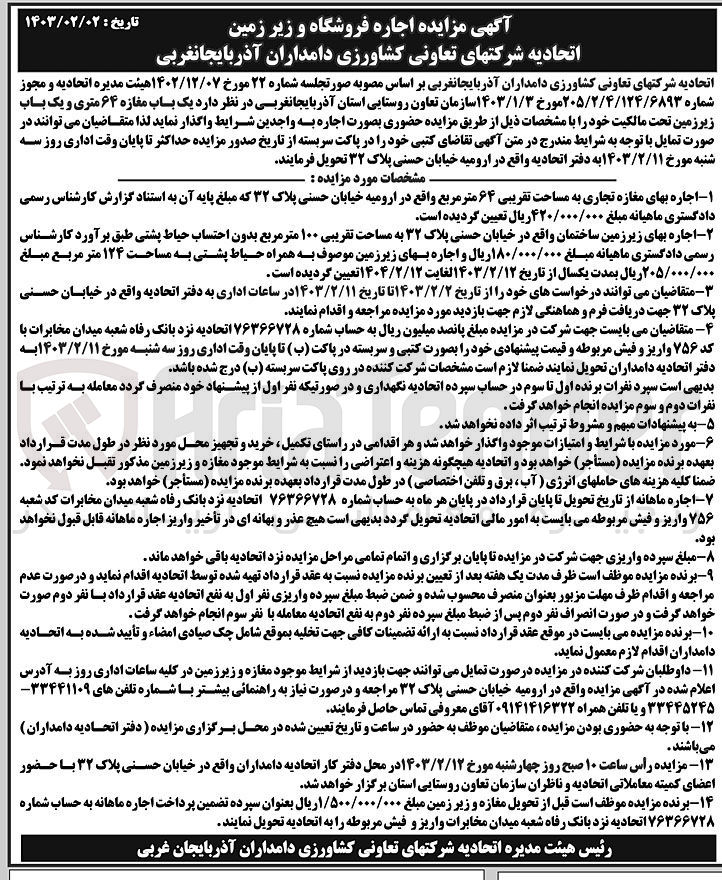 تاریخ : ۱۴۰۳/۰۲/۰۲
آگهی مزایده اجاره فروشگاه و زیر زمین
اتحادیه شرکتهای تعاونی کشاورزی دامداران آذربایجانغربی
اتحادیه شرکتهای تعاونی کشاورزی دامداران آذربایجانغربی بر اساس مصوبه صورتجلسه شماره ۲۲ مورخ ۱۴۰۲/۱۲/۰۷هیئت مدیره اتحادیه و مجوز
شماره ۲۰۵/۲/۴/۱۲۴/۶۸۹۳مورخ ۱۴۰۳/۱/۳سازمان تعاون روستایی استان آذربایجانغربی در نظر دارد یک باب مغازه ۶۴ متری و یک باب
زیرزمین تحت مالکیت خود را با مشخصات ذیل از طریق مزایده حضوری بصورت اجاره به واجدین شرایط واگذار نماید لذا متقاضیان می توانند در
صورت تمایل با توجه به شرایط مندرج در متن آگهی تقاضای کتبی خود را در پاکت سربسته از تاریخ صدور مزایده حداکثر تا پایان وقت اداری روز سه
شنبه مورخ ۱۴۰۳/۲/۱۱به دفتر اتحادیه واقع در ارومیه خیابان حسنی پلاک ۳۲ تحویل فرمایند.
مشخصات مورد مزایده :
۱-اجاره بهای مغازه تجاری به مساحت تقریبی ۶۴ متر مربع واقع در ارومیه خیابان حسنی پلاک ۳۲ که مبلغ پایه آن به استناد گزارش کارشناس رسمی
دادگستری ماهیانه مبلغ ۴۲۰/۰۰۰/۰۰۰ریال تعیین گردیده است.
۲-اجاره بهای زیرزمین ساختمان واقع در خیابان حسنی پلاک ۳۲ به مساحت تقریبی ۱۰۰ متر مربع بدون احتساب حیاط پشتی طبق برآورد کارشناس
رسمی دادگستری ماهیانه مبلغ ۱۸۰/۰۰۰/۰۰۰ریال و اجاره بهای زیرزمین موصوف به همراه حیاط پشتی به مساحت ۱۲۴ متر مربع مبلغ
۲۰۵/۰۰۰/۰۰۰ریال بمدت یکسال از تاریخ ۱۴۰۳/۲/۱۲لغایت ۱۴۰۴/۲/۱۲تعیین گردیده است .
۳-متقاضیان می توانند درخواست های خود را از تاریخ ۱۴۰۳/۲/۲تا تاریخ ۱۴۰۳/۲/۱۱در ساعات اداری به دفتر اتحادیه واقع در خیابان حسنی
پلاک ۳۲ جهت دریافت فرم و هماهنگی لازم جهت بازدید مورد مزایده مراجعه و اقدام نمایند.
۴- متقاضیان می بایست جهت شرکت در مزایده مبلغ پانصد میلیون ریال به حساب شماره ۷۶۳۶۶۷۲۸ اتحادیه نزد بانک رفاه شعبه میدان مخابرات با
کد ۷۵۶ واریز و فیش مربوطه و قیمت پیشنهادی خود را بصورت کتبی و سربسته در پاکت (ب) تا پایان وقت اداری روز سه شنبه مورخ ۱۴۰۳/۲/۱۱به
دفتر اتحادیه دامداران تحویل نمایند ضمنا لازم است مشخصات شرکت کننده در روی پاکت سربسته (ب) درج شده باشد.
بدیهی است سپرد نفرات برنده اول تا سوم در حساب سپرده اتحادیه نگهداری و در صورتیکه نفر اول از پیشنهاد خود منصرف گردد معامله به ترتیب با
نفرات دوم و سوم مزایده انجام خواهد گرفت .
۵-به پیشنهادات مبهم و مشروط ترتیب اثر داده نخواهد شد.
۶-مورد مزایده با شرایط و امتیازات موجود واگذار خواهد شد و هر اقدامی در راستای تکمیل ، خرید و تجهیز محل مورد نظر در طول مدت قرارداد
بعهده برنده مزایده (مستأجر) خواهد بود و اتحادیه هیچگونه هزینه و اعتراضی را نسبت به شرایط موجود مغازه و زیرزمین مذکور تقبل نخواهد نمود.
ضمنا کلیه هزینه های حاملهای انرژی ( آب ، برق و تلفن اختصاصی ) در طول مدت قرارداد بعهده برنده مزایده (مستأجر) خواهد بود.
۷-اجاره ماهانه از تاریخ تحویل تا پایان قرارداد در پایان هر ماه به حساب شماره ۷۶۳۶۶۷۲۸ اتحادیه نزد بانک رفاه شعبه میدان مخابرات کد شعبه
۷۵۶ واریز و فیش مربوطه می بایست به امور مالی اتحادیه تحویل گردد بدیهی است هیچ عذر و بهانه ای در تأخیر واریز اجاره ماهانه قابل قبول نخواهد
بود.
۸-مبلغ سپرده واریزی جهت شرکت در مزایده تا پایان برگزاری و اتمام تمامی مراحل مزایده نزد اتحادیه باقی خواهد ماند .
۹-برنده مزایده موظف است ظرف مدت یک هفته بعد از تعیین برنده مزایده نسبت به عقد قرارداد تهیه شده توسط اتحادیه اقدام نماید و درصورت عدم
مراجعه و اقدام ظرف مهلت مزبور بعنوان منصرف محسوب شده و ضمن ضبط مبلغ سپرده واریزی نفر اول به نفع اتحادیه عقد قرارداد با نفر دوم صورت
خواهد گرفت و در صورت انصراف نفر دوم پس از ضبط مبلغ سپرده نفر دوم به نفع اتحادیه معامله با نفر سوم انجام خواهد گرفت .
۱۰-برنده مزایده می بایست در موقع عقد قرارداد نسبت به ارائه تضمینات کافی جهت تخلیه بموقع شامل چک صیادی امضاء و تأیید شده به اتحادیه
دامداران اقدام لازم معمول نماید.
۱۱- داوطلبان شرکت کننده در مزایده در صورت تمایل می توانند جهت بازدید از شرایط موجود مغازه و زیرزمین در کلیه ساعات اداری روز به آدرس
اعلام شده در آگهی مزایده واقع در ارومیه خیابان حسنی پلاک ۳۲ مراجعه و درصورت نیاز به راهنمائی بیشتر با شماره تلفن های ۳۳۴۴۱۱۰۹-
۳۳۴۴۵۲۴۵ و یا تلفن همراه ۰۹۱۴۱۴۱۶۳۲۲آقای معروفی تماس حاصل فرمایند.
۱۲- با توجه به حضوری بودن مزایده ، متقاضیان موظف به حضور در ساعت و تاریخ تعیین شده در محل برگزاری مزایده ( دفتر اتحادیه دامداران )
می‌باشند .
۱۳- مزایده رأس ساعت ۱۰ صبح روز چهارشنبه مورخ ۱۴۰۳/۲/۱۲در محل دفتر کار اتحادیه دامداران واقع در خیابان حسنی پلاک ۳۲ با حضور
اعضای کمیته معاملاتی اتحادیه و ناظران سازمان تعاون روستایی استان برگزار خواهد شد.
۱۴-برنده مزایده موظف است قبل از تحویل مغازه و زیر زمین مبلغ ۱/۵۰۰/۰۰۰/۰۰۰ریال بعنوان سپرده تضمین پرداخت اجاره ماهانه به حساب شماره
۷۶۳۶۶۷۲۸اتحادیه نزد بانک رفاه شعبه میدان مخابرات واریز و فیش مربوطه را به اتحادیه تحویل نمایند .
رئیس هیئت مدیره اتحادیه شرکتهای تعاونی کشاورزی دامداران آذربایجان غربی